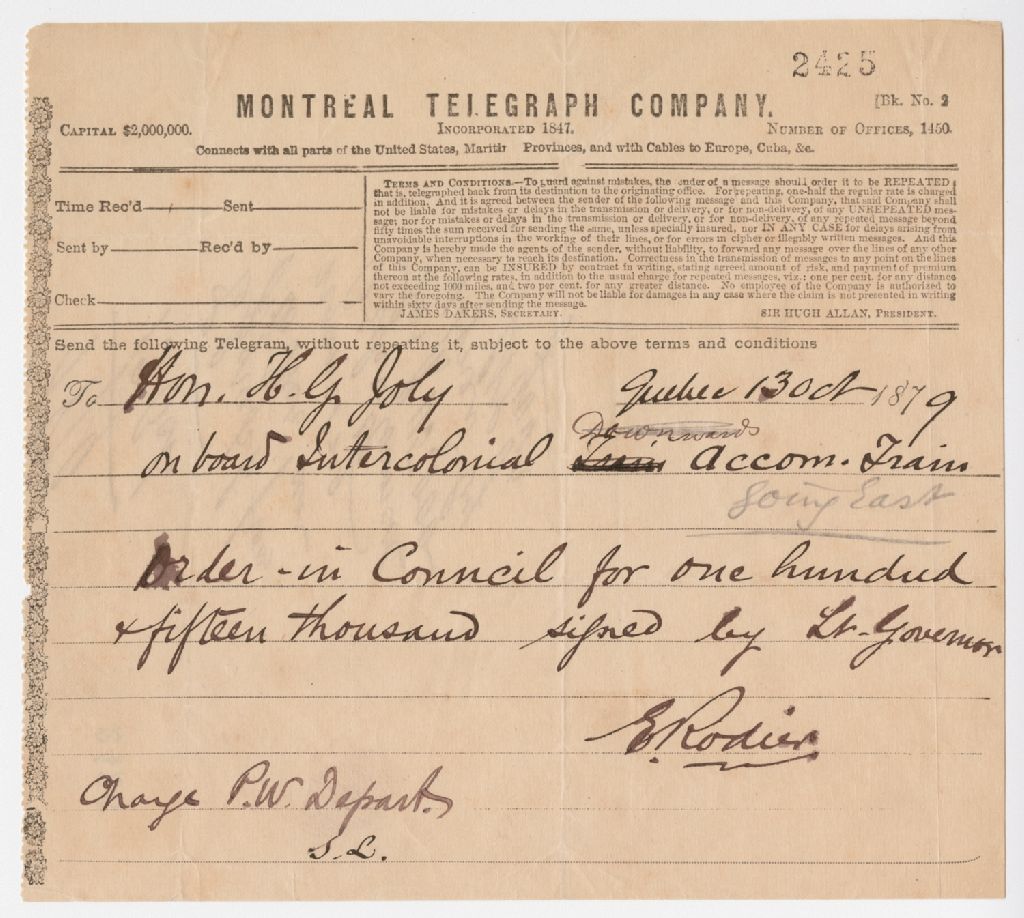 2425
MONTREAL TELEGRAPH COMPANY.
[Bk. No. 2
CAPITAL $2,000,000.
INCORPORATED 1847.
NUMBER OF OFFICES, 1450.
Connects with all parts of the United States, Maritir Provinces, and with Cables to Europe, Cuba, &c.
Time Rec'd Sent
Sent by Rec'd by
Check
TERMS AND CONDITIONS.—To guard against mistakes, the sender of a message should order it to be REPEATED;
that is, telegraphed back from its destination to the originating office. For repeating, one-half the regular rate is charged
in addition. And it is agreed between the sender of the following message and this Company, that said Company shall
not be liable for mistakes or delays in the transmission or delivery, or for non-delivery, of any UNREPEATED mes-
sage; nor for mistakes or delays in the transmission or delivery, or for non-delivery, of any repeated message beyond
fifty times the sum received for sending the same, unless specially insured, nor IN ANY CASE for delays arising from
unavoidable interruptions in the working of their lines, or for errors in cipher or illegibly written messages. And this
Company is hereby made the agents of the sender, without liability, to forward any message over the lines of any other
Company, when necessary to reach its destination. Correctness in the transmission of messages to any point on the lines
of this Company, can be INSURED by contract in writing, stating agreed amount of risk, and payment of premium
thereon at the following rates, in addition to the usual charge for repeated messages, viz.: one per cent. for any distance
not exceeding 1000 miles, and two per cent. for any greater distance. No employee of the Company is authorized to
vary the foregoing. The Company will not be liable for damages in any case where the claim is not presented in writing
within sixty days after sending the message.
JAMES DAKERS, SECRETARY. SIR HUGH ALLAN, PRESIDENT.
Send the following Telegram, without repeating it, subject to the above terms and conditions
To Hon. H. G. Joly Quebec 13 Oct 1879
Downwards
on board Intercolonial Train Accom. Train
going East
Order-in Council for one hundred
& fifteen thousand signed by Lt-Governor
E. Rodier
Charge P.W. Depart.
S.L.